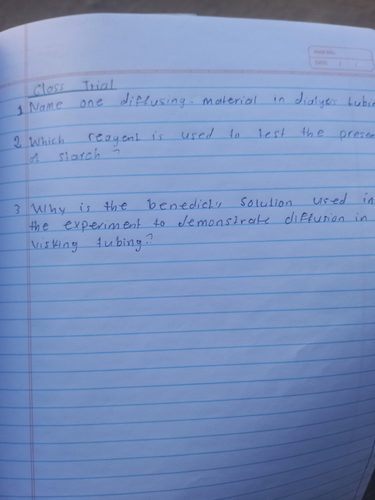 Class Trial
1 Name one diffusing material in dialyes tubin
2 Which reagent is used to test the presen
of starch?
3 Why is the benedicts solution used in
the experiment to demonstrate diffusion in
visking tubing?